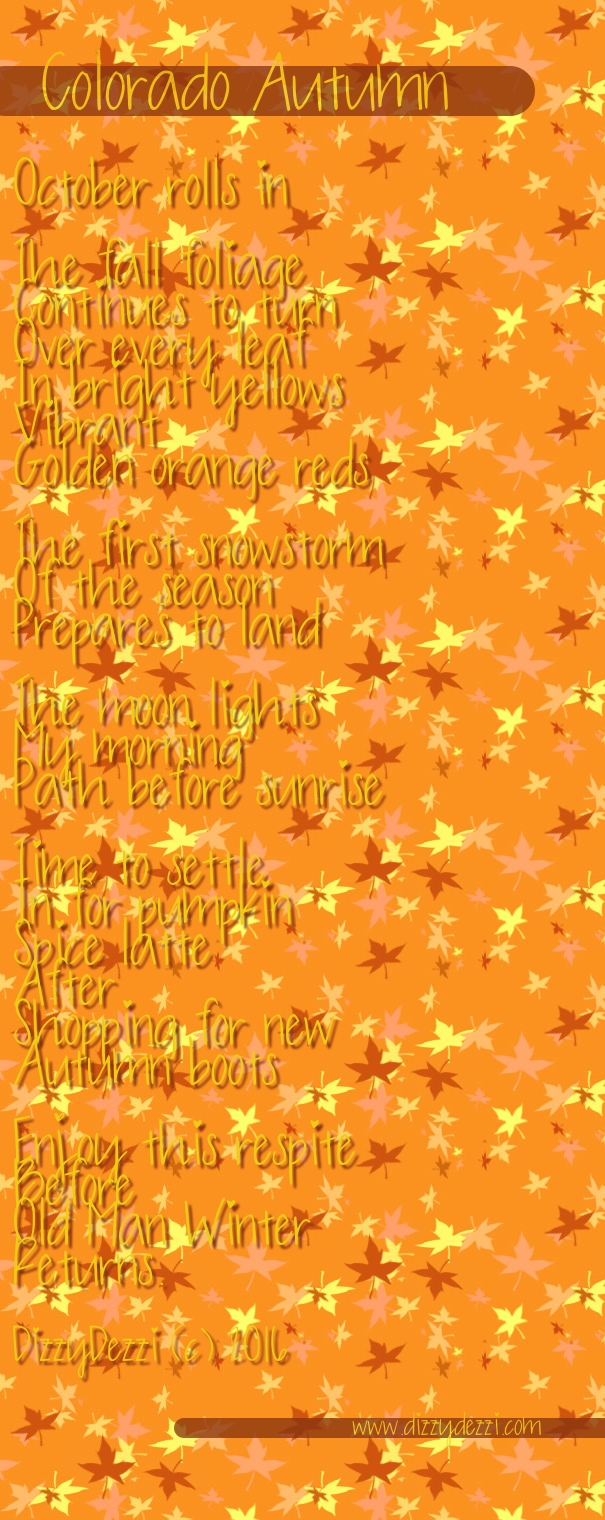 Colorado Autumn
October rolls in
The fall foliage
Continues to turn
Over every leaf
In bright yellows
Vibrant
Golden orange reds
The first snowstorm
Of the season
Prepares to land
The moon lights
My morning
Path before sunrise
Time to settle
In for pumpkin
Spice latte
After
Shopping for new
Autumn boots
Enjoy this respite
Before
Old Man Winter
Returns.
DizzyDezzi (c) 2016
www.dizzydezzi.com